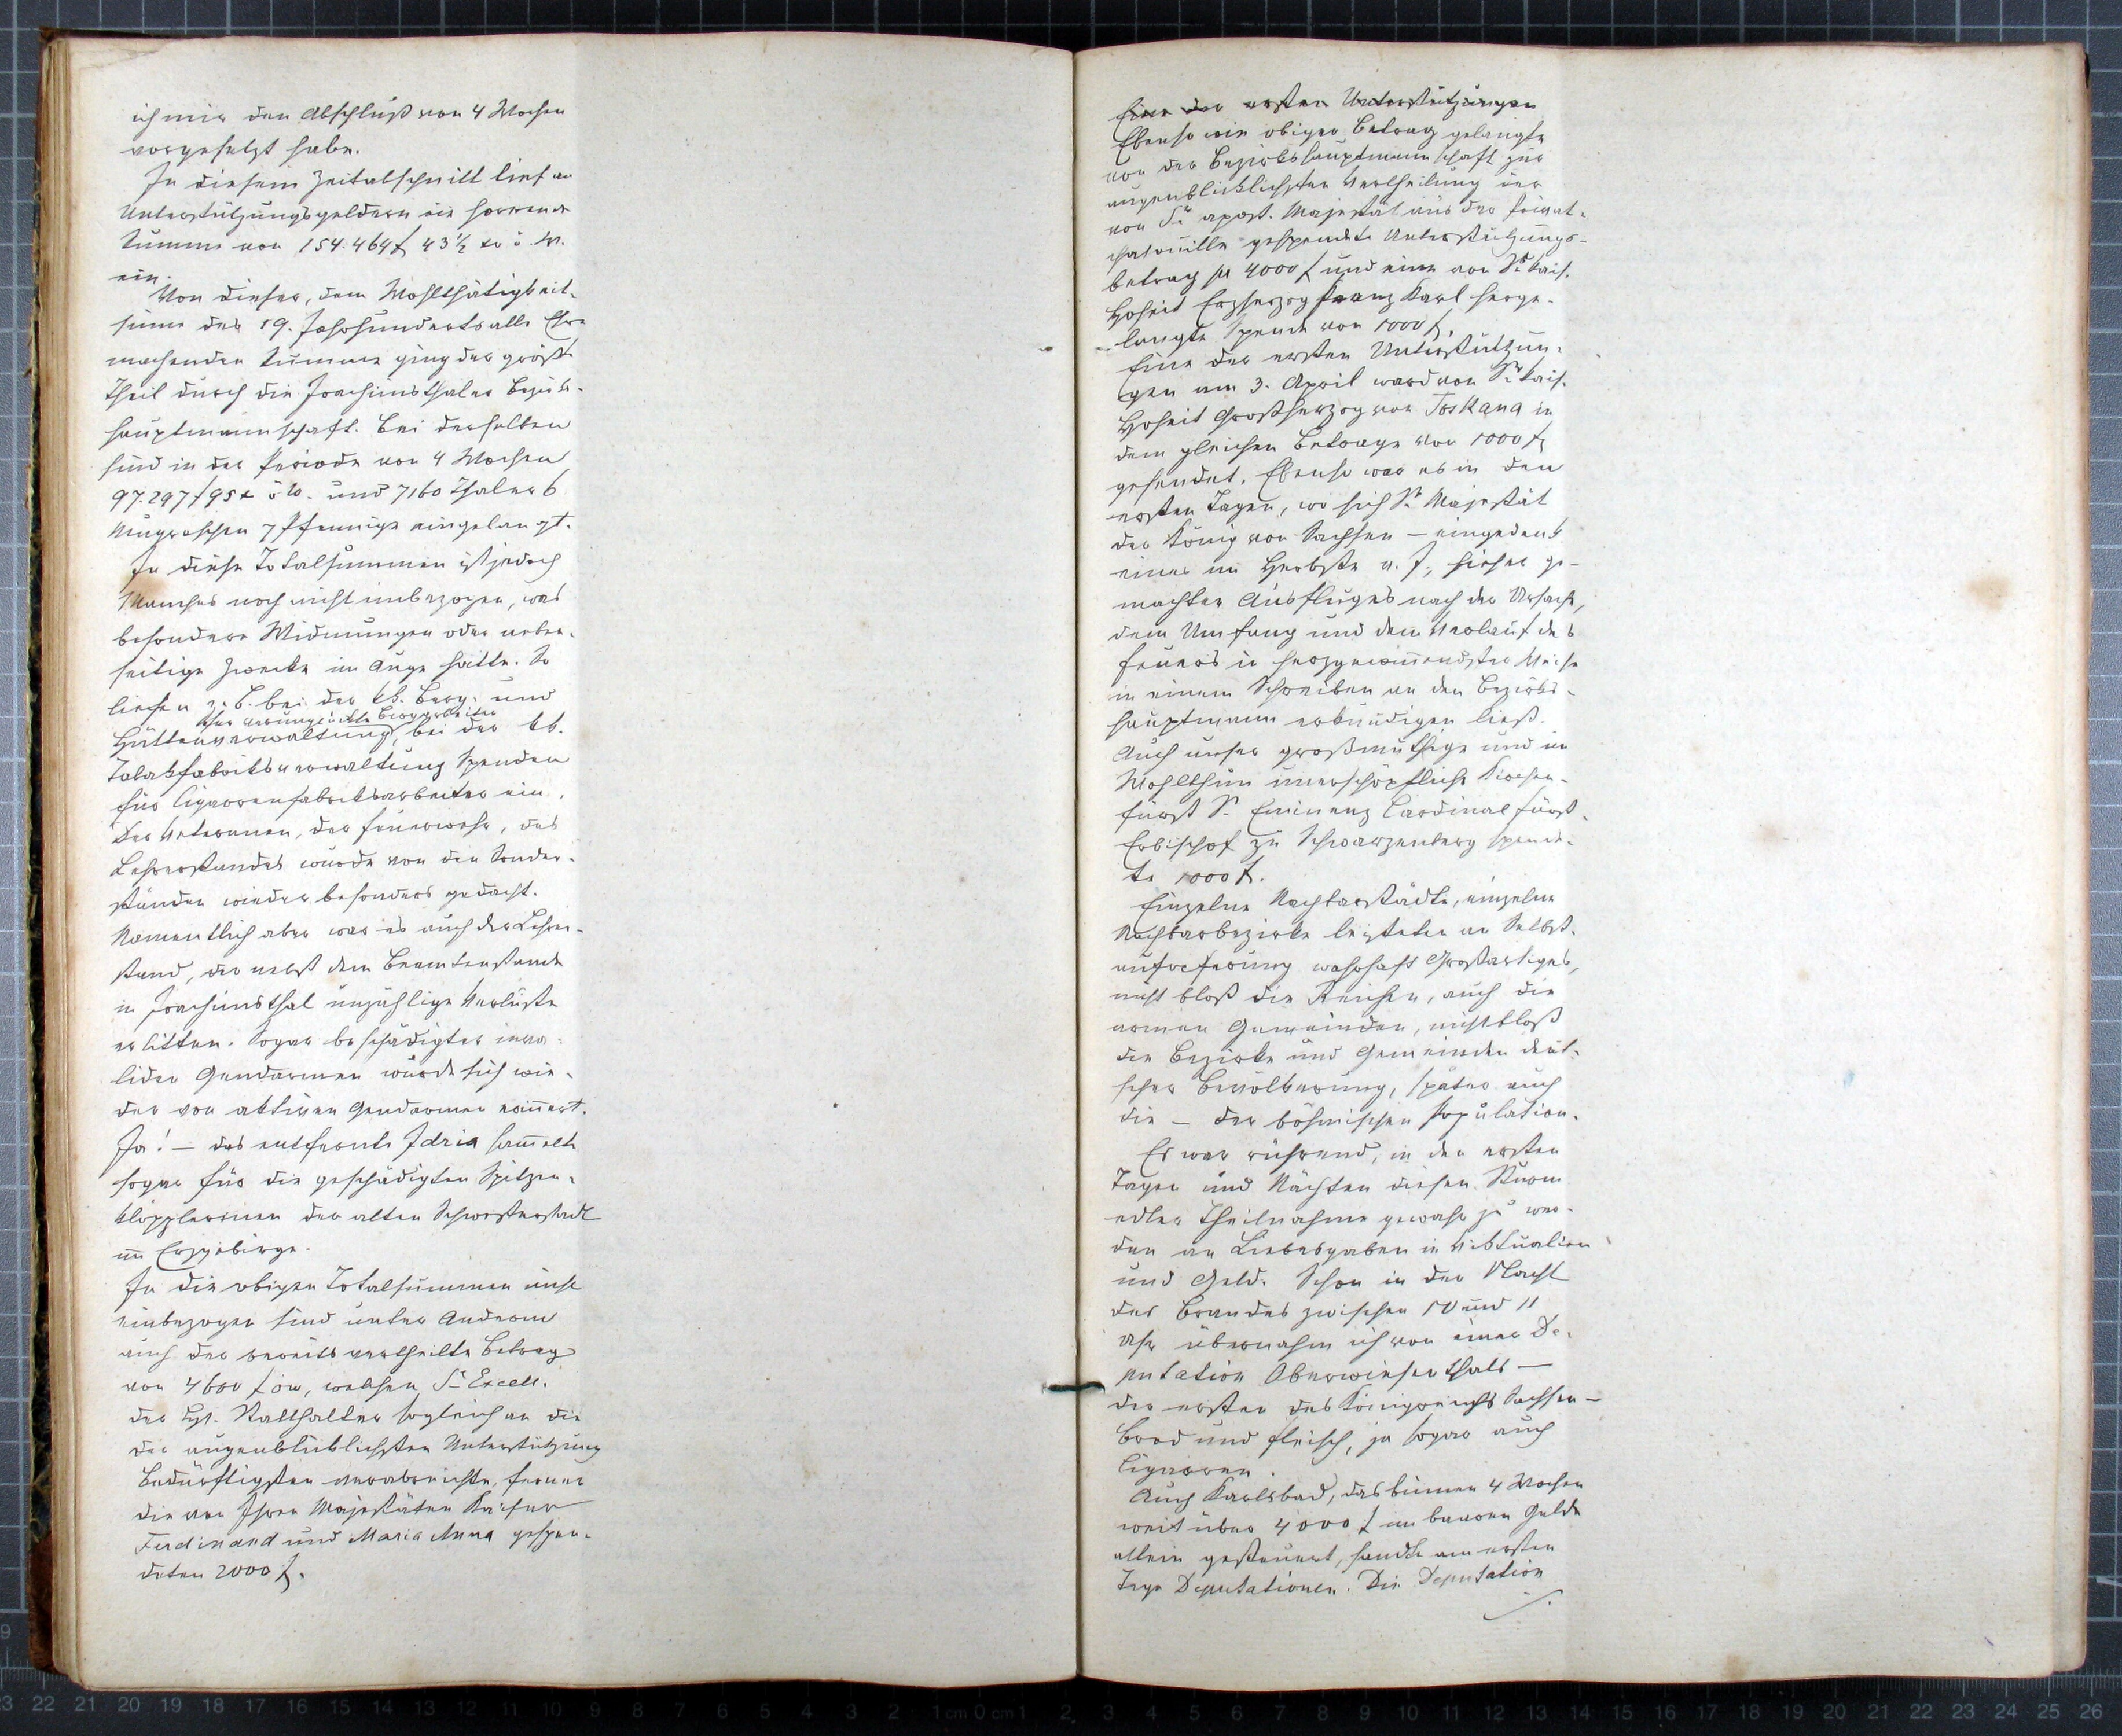 ich mir den Abschluß von 4 Wochen
vorgesetzt habe.
In diesem Zeitabschnitt lief an
Unterstützungsgeldern die horrende
Summe von 154.464 f 43½ kr ö. W.
ein.
Von dieser, dem Wohlthätigkeit-
sinne des 19. Jahrhunderts alle Ehre
machenden Summe ging der größte
Theil durch die Joachimsthaler Bezirks-
hauptmannschaft. Bei derselben
sind in der Periode von 4 Wochen
97.297 f 95 x ö W. und 7160 Thaler 6
Neugroschen 7 Pfennige eingelangt.
In diese Totalsummen ist jedoch
Manches noch nicht einbezogen, was
besondere Widmungen oder neben-
seitige Zwecke im Auge hatte. So
liefen z. B. bei der kk. Berg- und
für verunglückte Bergarbeiter
Hüttenverwaltung, bei der kk.
Tabakfabriksverwaltung Spenden
für Cigarrenfabriksarbeiter ein.
Der Veteranen, der Feuerwehr, des
Lehrerstandes wurde von den Sonder-
ständen wieder besonders gedacht.
Namentlich aber war es auch der Lehrer-
stand, der nebst dem Beamtenstande
in Joachimsthal unzählige Verluste
erlitten. Sogar beschädigter inva-
lider Gendarmen wurde sich wie-
der von aktiven Gendarmen erinnert.
Ja! – das entfernte Idria sammelte
sogar für die geschädigten Spitzen-
klöpplerinen der alten Schwesterstadt
im Erzgebirge.
In die obigen Totalsummen nicht
einbezogen sind unter Anderm
auch der bereits vertheilte Betrag
von 4600 f öw, welchen Sr Excell.
der Statthalter sogleich an die
der augenblicklichsten Unterstützung
Bedürftigsten verabreichte, ferner
die von Ihren Majestäten Kaiser
Ferdinand und Maria Anna gespen-
deten 2000 f.
Eine der ersten Unterstützungen
Ebenso wie obiger Betrag gelangte
von der Bezirkshauptmannschaft zur
augenblicklichsten Vertheilung der
von Sr apost. Majestät aus der Privat-
chatouille gespendete Unterstützungs-
betrag pr 4000 f und eine von Sr kais.
Hoheit Erzherzog Franz Karl herge-
langte Spende von 1000 f.
Eine der ersten Unterstützun-
gen am 3. April ward von Sr kais.
Hoheit Großherzog von Toskana in
dem gleichen Betrage von 1000 f
gesendet. Ebenso war es in den
ersten Tagen, wo sich Sr Majestät
der König von Sachsen – eingedenk
eines im Herbste v. J. hieher ge-
machten Ausfluges nach der Ursache,
dem Umfang und dem Verlauf des
Feuers in herzgewinnendster Weise
in einem Schreiben an den Bezirks-
hauptmann erkundigen ließ.
Auch unser großmüthige und im
Wohlthun unerschöpfliche Kirchen-
fürst Sr Eminenz Cardinal Fürst-
Erbischof zu Schwarzenberg spende-
te 1000 f.
Einzelne Nachbarstädte, einzelne
Nachbarbezirke leisteten an Selbst-
aufopferung wahrhaft Großartiges,
nicht bloß die Reichen, auch die
armen Gemeinden, nicht bloß
die Bezirke und Gemeinden deut-
scher Bevölkerung, später auch
die – der böhmischen Population.
Es war rührend, in den ersten
Tagen und Nächten diesen Sturm
edler Theilnahme gewahr zu wer-
den an Liebesgaben in Viktualien
und Geld. Schon in der Nacht
des Brandes zwischen 10 und 11
Uhr übernahm ich von einer De-
putation Oberwiesenthals –
der ersten des Königreichs Sachsen –
Brod und Fleisch, ja sogar auch
Cigarren.
Auch Karlsbad, das binnen 4 Wochen
weit über 4000 f im baaren Gelde
allein gesteuert, sandte am ersten
Tage Deputationen. Die Deputation